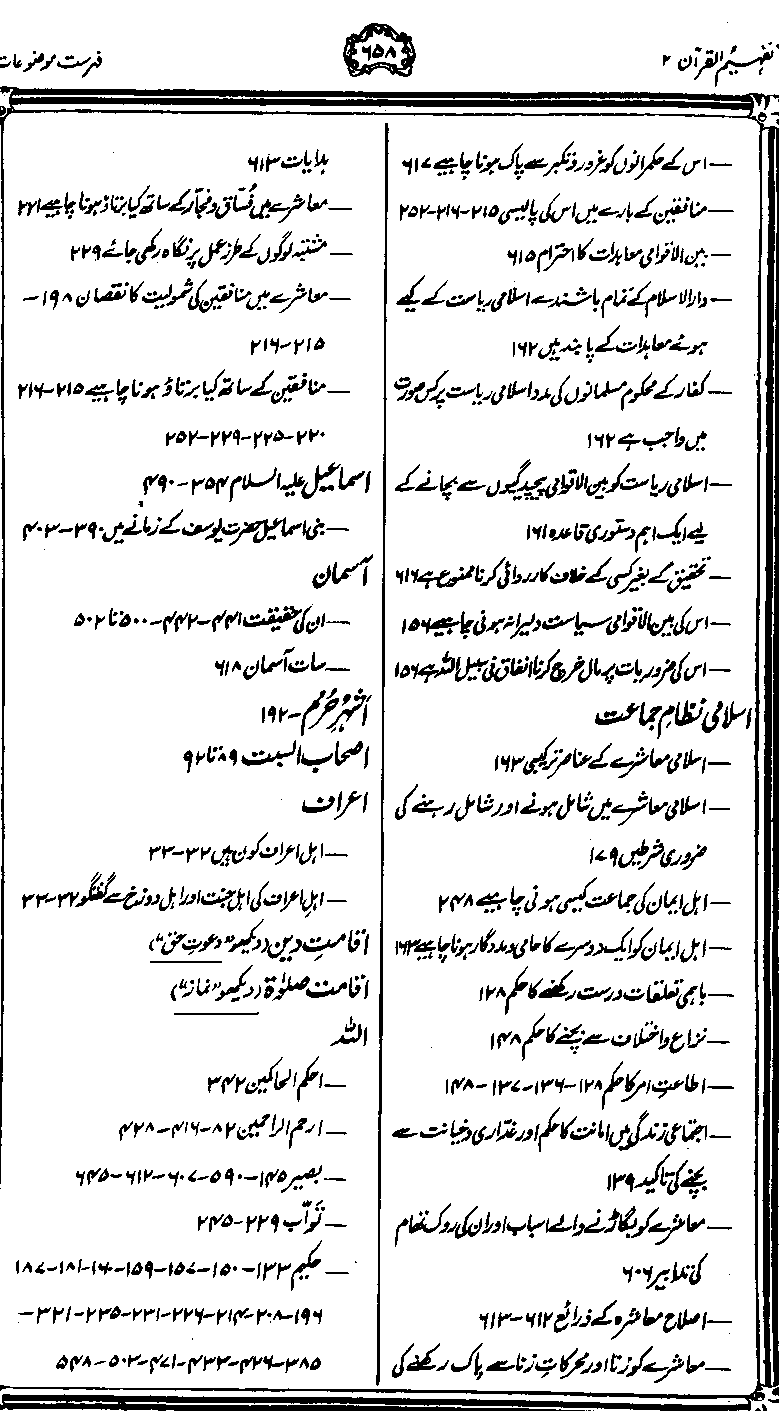 تفہیم القرآن ۲
۶۵۸
فہرست موضوعات
— اس کے حکمرانوں کو غرور و تکبر سے پاک ہونا چاہیے ۶۱۷
— منافقین کے بارے میں اس کی پالیسی ۲۱۵-۲۱۶-۲۵۲
— بین الاقوامی معاہدات کا احترام ۶۱۵
— دارالاسلام کے تمام باشندے اسلامی ریاست کے کیے
ہوئے معاہدات کے پابند ہیں ۱۶۲
— کفار کے محکوم مسلمانوں کی مدد اسلامی ریاست پر کس صورت
میں واجب ہے ۱۶۲
— اسلامی ریاست کو بین الاقوامی پیچیدگیوں سے بچانے کے
لیے ایک اہم دستوری قاعدہ ۱۶۱
— تحقیق کے بغیر کسی کے خلاف کارروائی کرنا ممنوع ہے ۶۱۶
— اس کی بین الاقوامی سیاست دلیرانہ ہونی چاہیے ۱۵۶
— اس کی ضروریات پر مال خرچ کرنا انفاق فی سبیل اللہ ہے ۱۵۶
اسلامی نظامِ جماعت
— اسلامی معاشرے کے عناصر ترکیبی ۱۶۳
— اسلامی معاشرے میں شامل ہونے اور شامل رہنے کی
ضروری شرطیں ۱۷۹
— اہل ایمان کی جماعت کیسی ہونی چاہیے ۲۴۸
— اہل ایمان کو ایک دوسرے کا حامی و مددگار ہونا چاہیے ۱۶۳
— باہمی تعلقات درست رکھنے کا حکم ۱۲۸
— نزاع و اختلاف سے بچنے کا حکم ۱۴۸
— اطاعتِ امر کا حکم ۱۲۸-۱۳۶-۱۳۷-۱۴۸
— اجتماعی زندگی میں امانت کا حکم اور غداری و خیانت سے
بچنے کی تاکید ۱۳۹
— معاشرے کو بگاڑنے والے اسباب اور ان کی روک تھام
کی تدابیر ۶۰۶
— اصلاح معاشرہ کے ذرائع ۶۱۲-۶۱۳
— معاشرے کو زنا اور محرکاتِ زنا سے پاک رکھنے کی
ہدایات ۶۱۳
— معاشرے میں فُسّاق و فجّار کے ساتھ کیا برتاؤ ہونا چاہیے ۲۲۱
— مشتبہ لوگوں کے طرزِ عمل پر نگاہ رکھی جائے ۲۲۹
— معاشرے میں منافقین کی شمولیت کا نقصان ۱۹۸-
۲۱۵-۲۱۶
— منافقین کے ساتھ کیا برتاؤ ہونا چاہیے ۲۱۵-۲۱۶
۲۲۰-۲۲۵-۲۲۹-۲۵۲
اسماعیل علیہ السلام ۳۵۴-۴۹۰
— بنی اسماعیل حضرت یوسف کے زمانے میں ۳۹۰-۴۰۳
آسمان
— ان کی حقیقت ۴۴۱-۴۴۲-۵۰۰ تا ۵۰۲
— سات آسمان ۶۱۸
اَشْہُرِ حُرُم - ۱۹۲
اصحاب السبت ۸۹ تا ۹۲
اعراف
— اہل اعراف کون ہیں ۳۲-۳۳
— اہلِ اعراف کی اہل جنت اور اہل دوزخ سے گفتگو ۳۲-۳۳
اقامتِ دین (دیکھو "دعوتِ حق")
اقامت صلوٰۃ (دیکھو "نماز")
اللہ
— احکم الحاکمین ۳۴۲
— ارحم الراحمین ۸۲-۴۱۶-۴۲۸
— بصیر ۱۴۵-۵۹۰-۶۰۷-۶۱۲-۶۴۵
— توّاب ۲۲۹-۲۴۵
— حکیم ۱۳۳-۱۵۰-۱۵۷-۱۵۹-۱۶۰-۱۸۱-۱۸۷
۱۹۶-۲۰۸-۲۱۴-۲۲۶-۲۳۱-۲۳۵-۳۲۱-
۳۸۵-۴۲۶-۴۳۳-۴۷۱-۵۰۳-۵۴۸